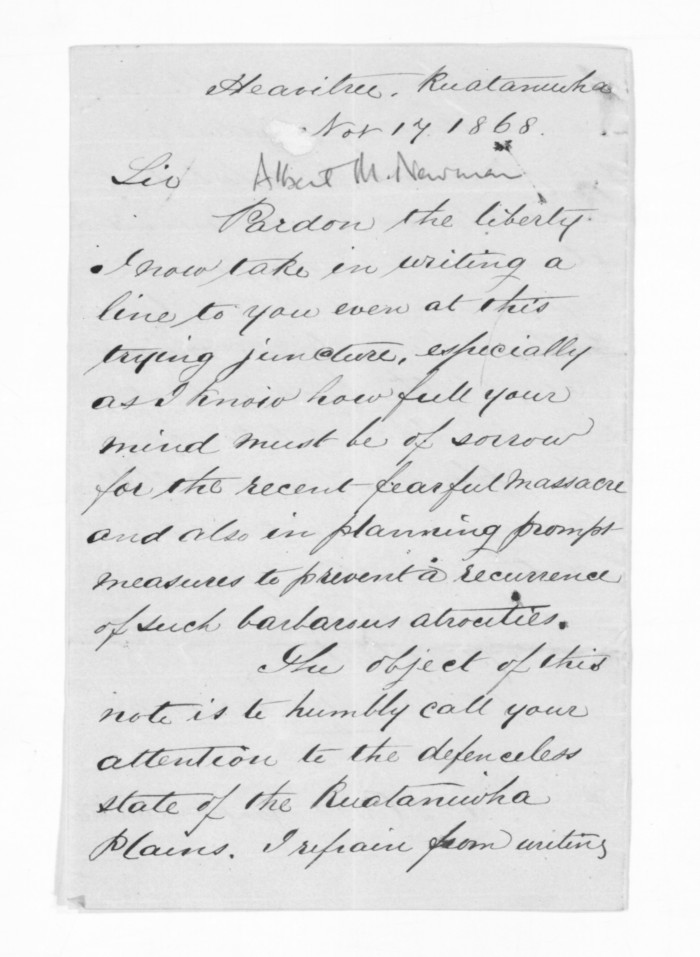 Heavitree. Ruataniwha
Nov 17. 1868.
Sir Albert M. Newman
Pardon the liberty
I now take in writing a
line to you even at this
trying juncture, especially
as I know how full your
mind must be of sorrow
for the recent fearful massacre
and also in planning prompt
measures to prevent a recurrence
of such barbarous atrocities.
The object of this
note is to humbly call your
attention to the defenceless
state of the Ruataniwha
Plains. I refrain from writing